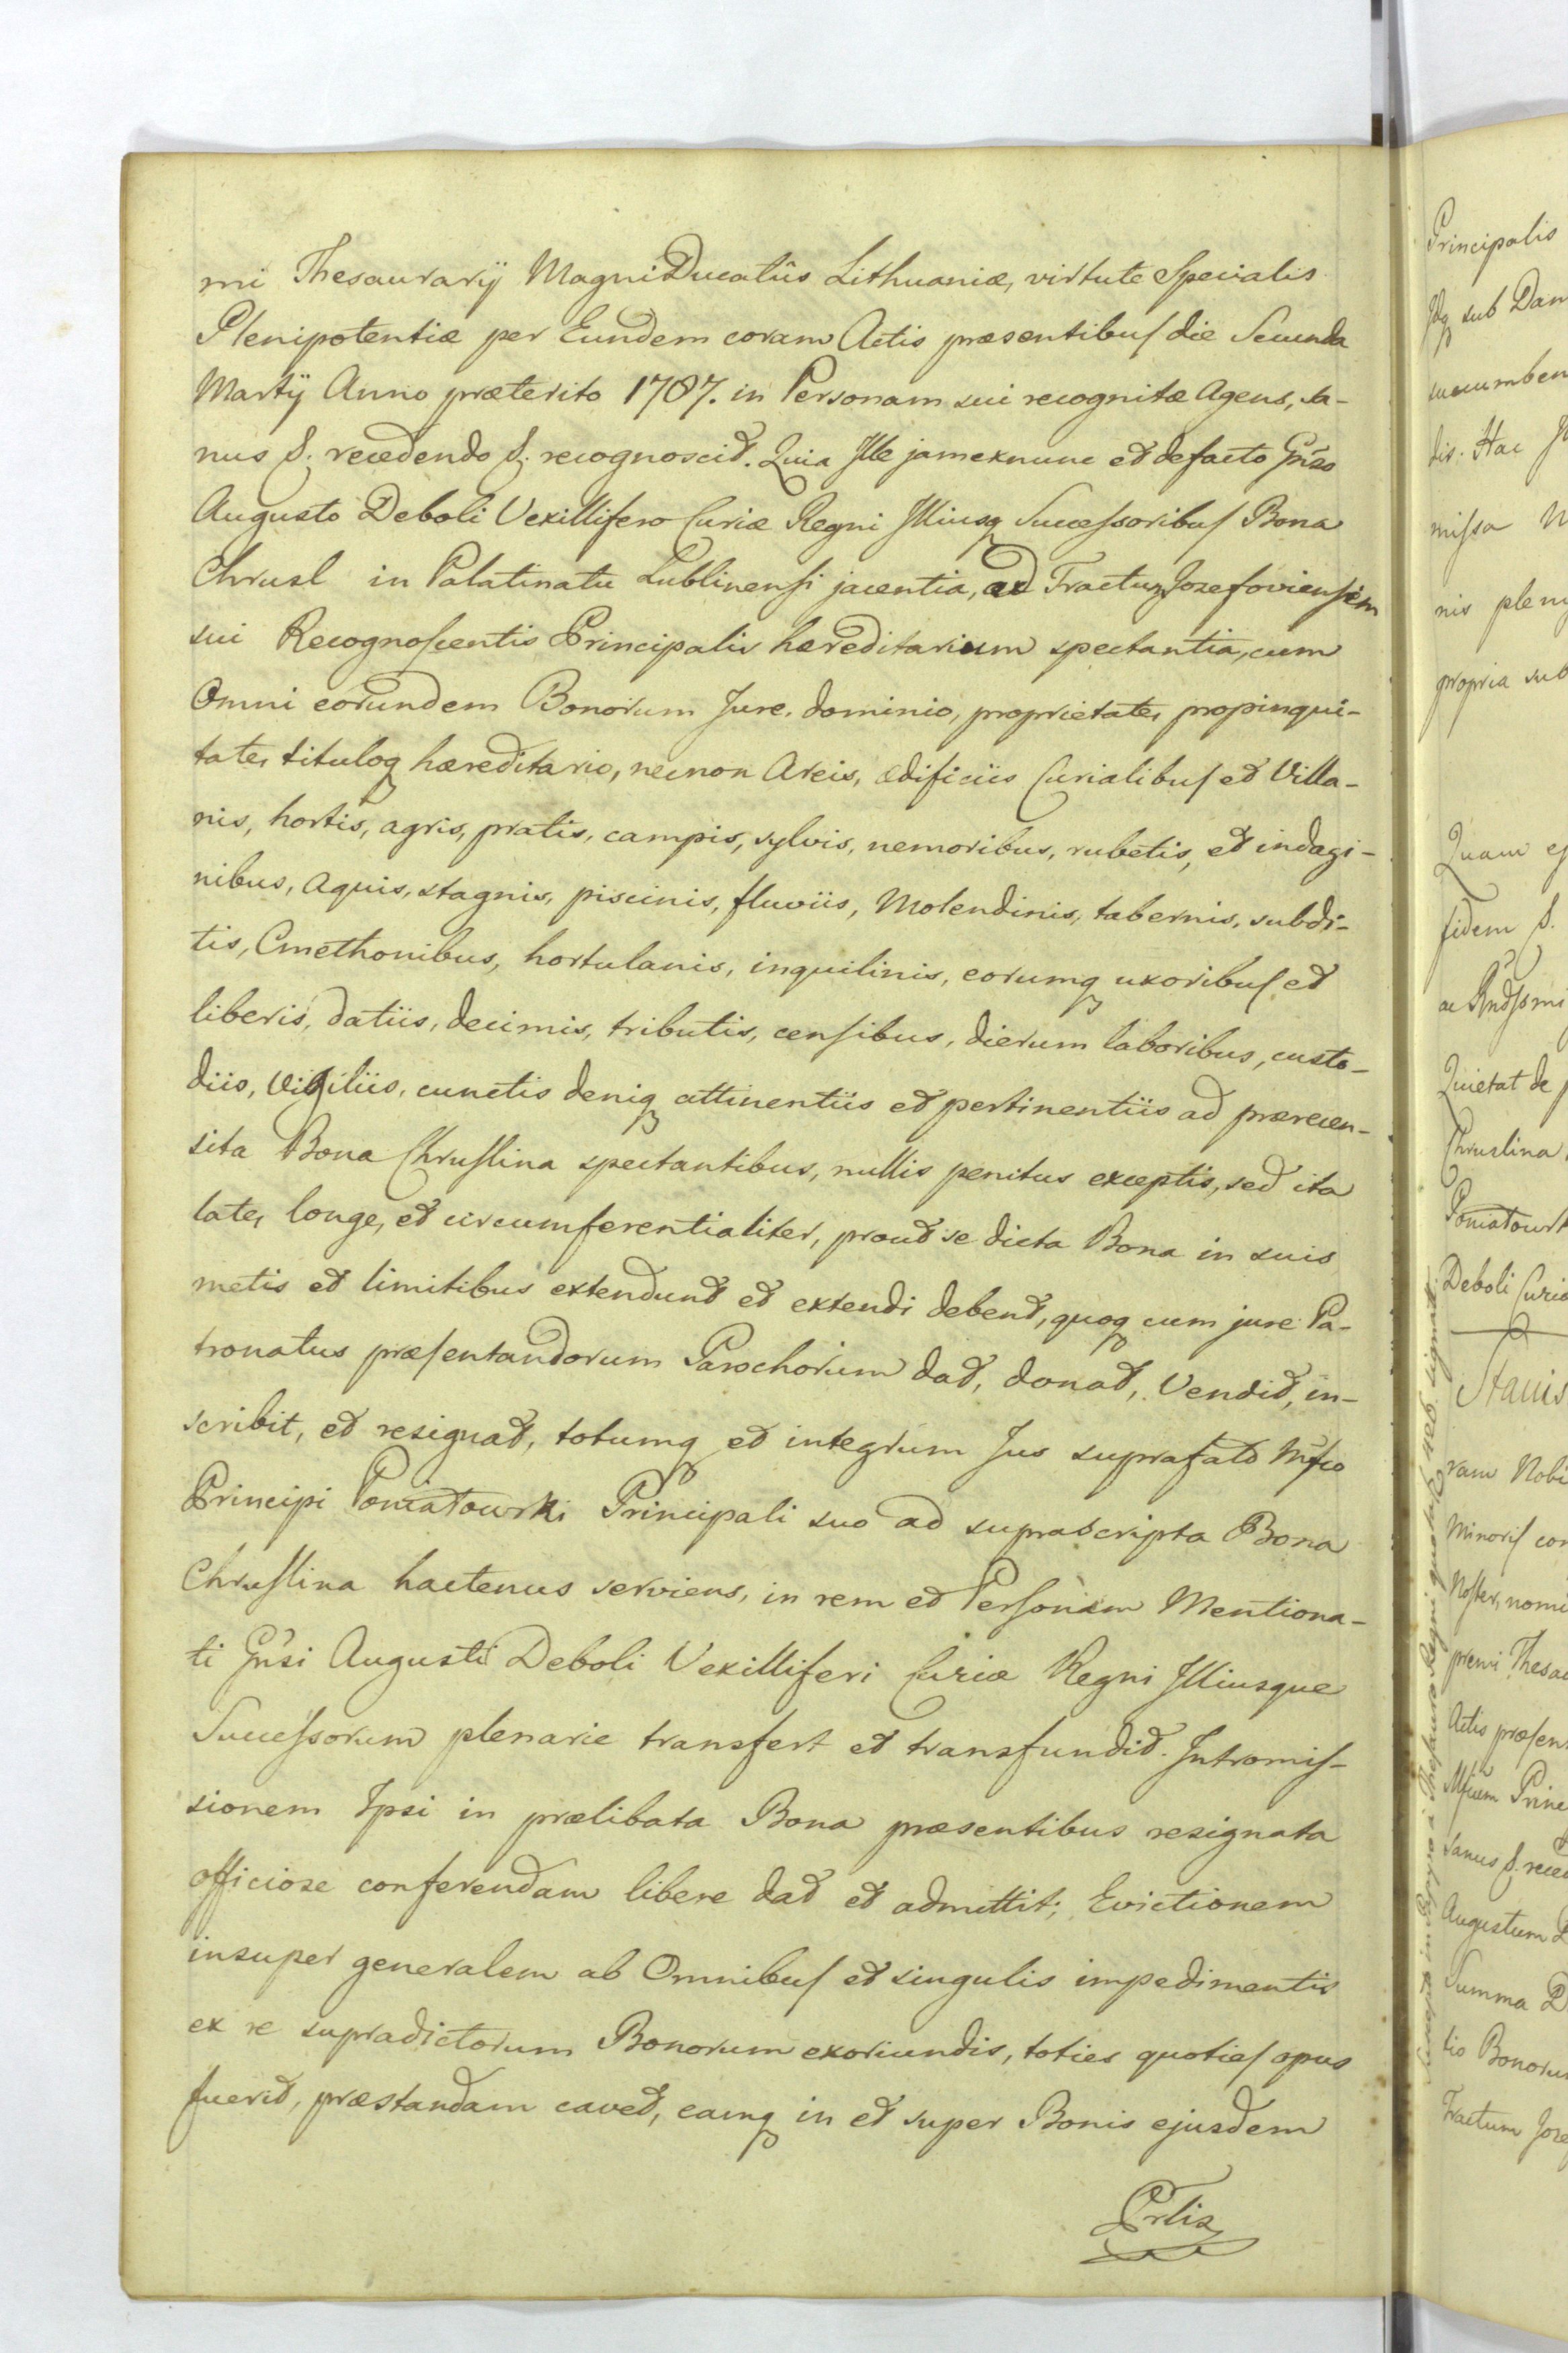 mi Thesaurarij Magni Ducatûs Lithuaniæ, virtute Specialis
Plenipotentiæ per Eundem coram Actis præsentibus die Secunda
Martij Anno præterito 1787. in Personam sui recognitæ Agens, sa-
nus S. recedendo S. recognoscit. Quia Ille jam exnunc et defacto Gnso
Augusto Deboli Vexillifero Curiæ Regni Illiusq Successoribus Bona
Chrusl in Palatinatu Lublinensi jacentia, ad Tractum Jozefoviensem
sui Recognoscentis Principalis hæreditarium spectantia, cum
Omni eorundem Bonorum Jure, dominio, proprietate, propinqui-
tate, tituloq hæreditario, necnon Areis, ædificiis Curialibus et Villa-
nis, hortis, agris, pratis, campis, sylvis, nemoribus, rubetis, et indagi-
nibus, Aquis, stagnis, piscinis, fluviis, Molendinis, tabernis, subdi-
tis, Cmethonibus, hortulanis, inquilinis, eorumq uxoribus et
liberis, datiis, decimis, tributis, censibus, dierum laboribus, custo-
diis, Vigiliis, cunctis deniq attinentiis et pertinentiis ad præreen-
sita Bona Chruslina spectantibus, nullis penitus exceptis, sed ita
late, longe, et circumferentialiter, prout se dicta Bona in suis
metis et limitibus extendunt et extendi debent, quoq cum jure Pa-
tronatus præsentandorum Parochorum dat, donat, Vendit, in-
scribit, et resignat, totumq et integrum Jus suprafato Mfco
Principi Poniatowski Principali suo ad suprascripta Bona
Chruslina hactenus serviens, in rem et Personam Mentiona-
ti Gnsi Augusti Deboli Vexilliferi Curiæ Regni Illiusque
Successorum plenarie transfert et transfundit. Intromis-
sionem Ipsi in prælibata Bona præsentibus resignata
officiose conferendam libere dat et admittit; Evictionem
insuper generalem ab Omnibus et singulis impedimentis
ex re supradictorum Bonorum exoriundis, toties quoties opus
fuerit, præstandam cavet, eamq in et super Bonis ejusdem
Prlis
Principalis
sub Dam
succumben
dis. Hac
missa
nis plen
propria sub
Quam
fidem S.
Quietat de
Chruslina
Poniatowsk
Deboli Curiæ
Stanis
ram Nobi
Minoris cor
Noster, nomi
premi Thesau
Actis præsen
Mfcum Princ
sanus S. reced
Augustum D
Summa
tio Bonorum
Tractum Joze